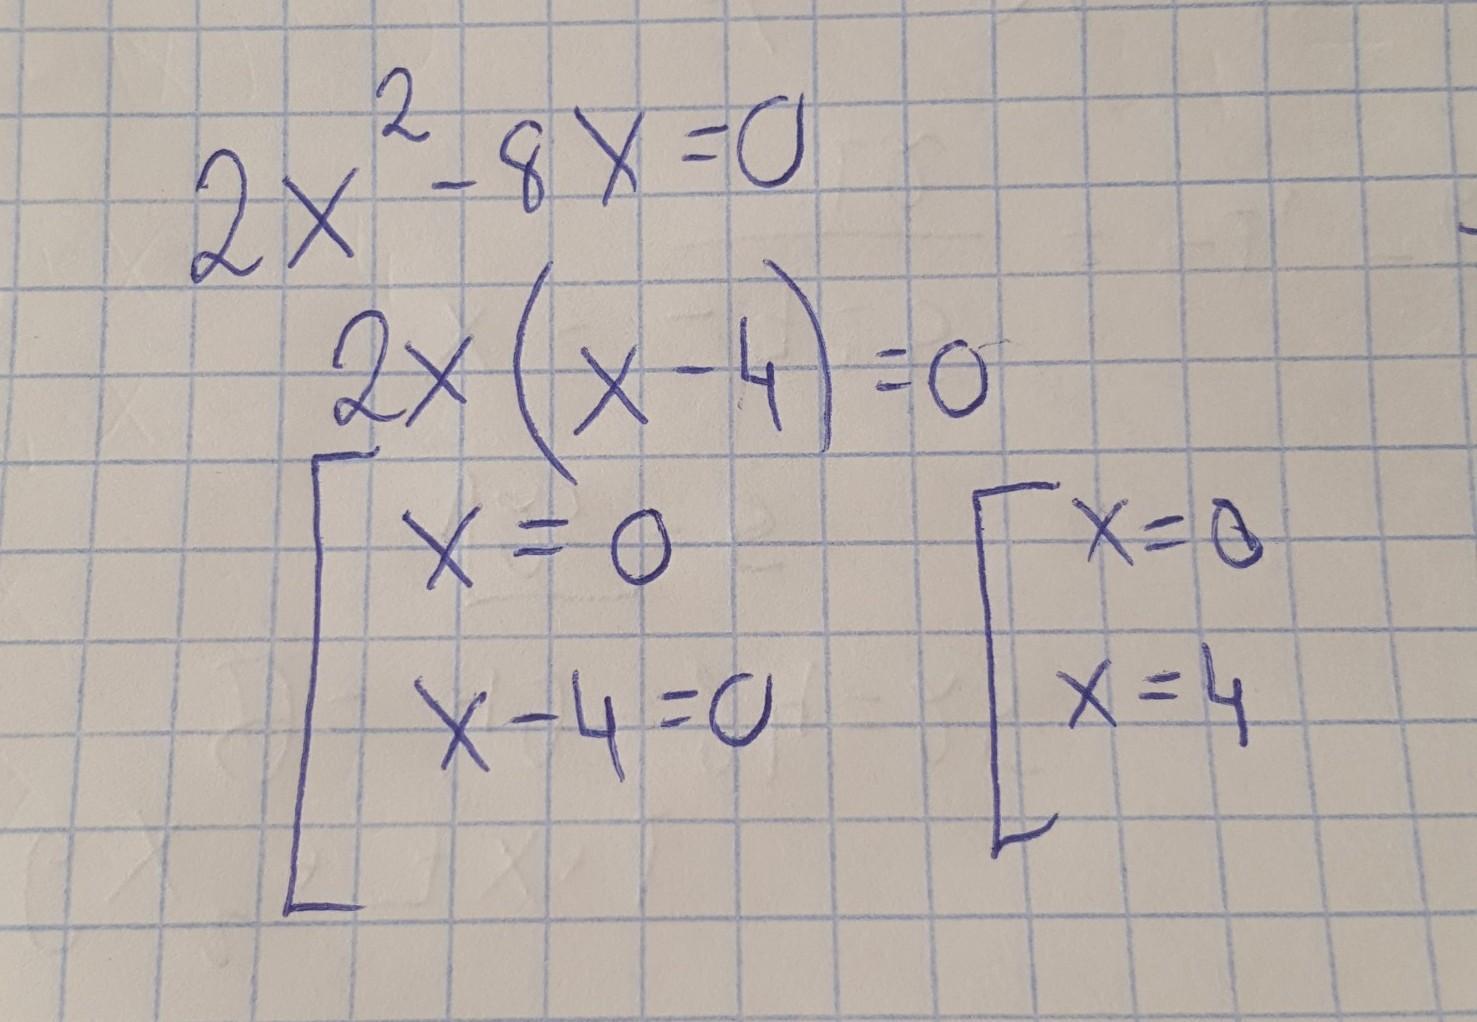 2x² - 8x = 0
2x (x - 4) = 0
[ x = 0 [ x = 0
x - 4 = 0 x = 4